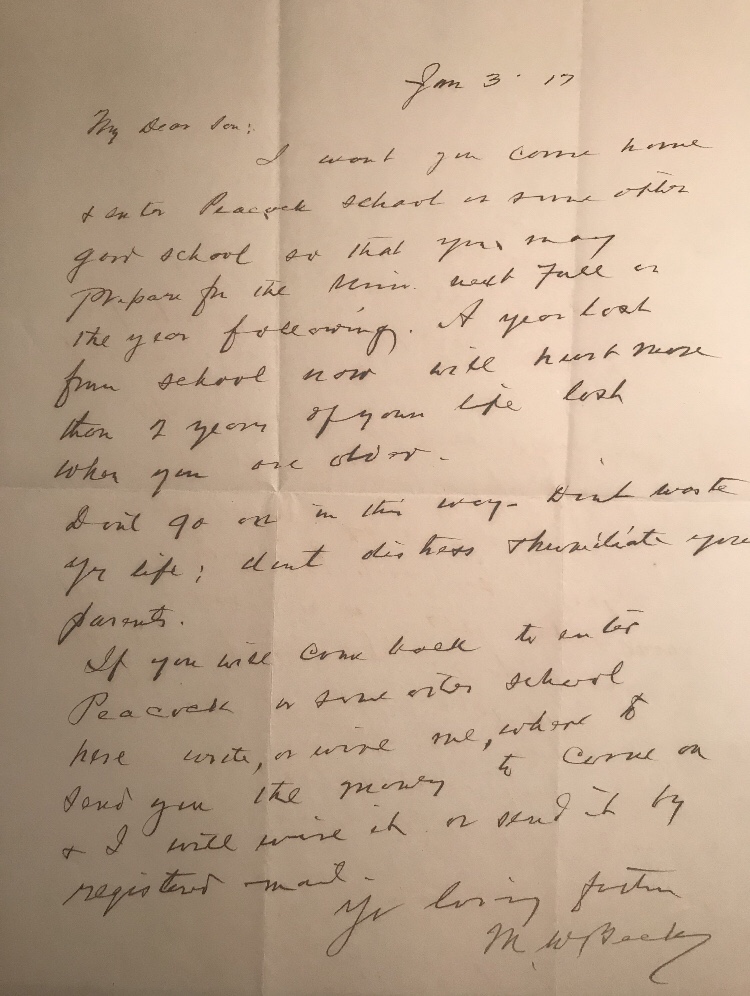 Jan 3 - 17
My Dear Son:
I want you come home
& enter Peacock school or some other
good school so that you may
prepare for the Univ. next Fall or
the year following. A year lost
from school now will hurt more
than 2 years of your life lost
when you are older -
Don't go on in this way - Dont waste
yr life; dont distress & humiliate your
parents.
If you will come back to enter
Peacock or some other school
here write, or wire me, where to
send you the money to come on
& I will wire it or send it by
registered mail -
Yr loving father
M. W. Beck